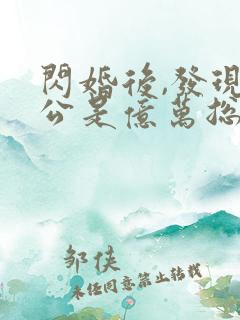 閃婚後,發現
公是億萬總
邹侠
未经同意禁止转载